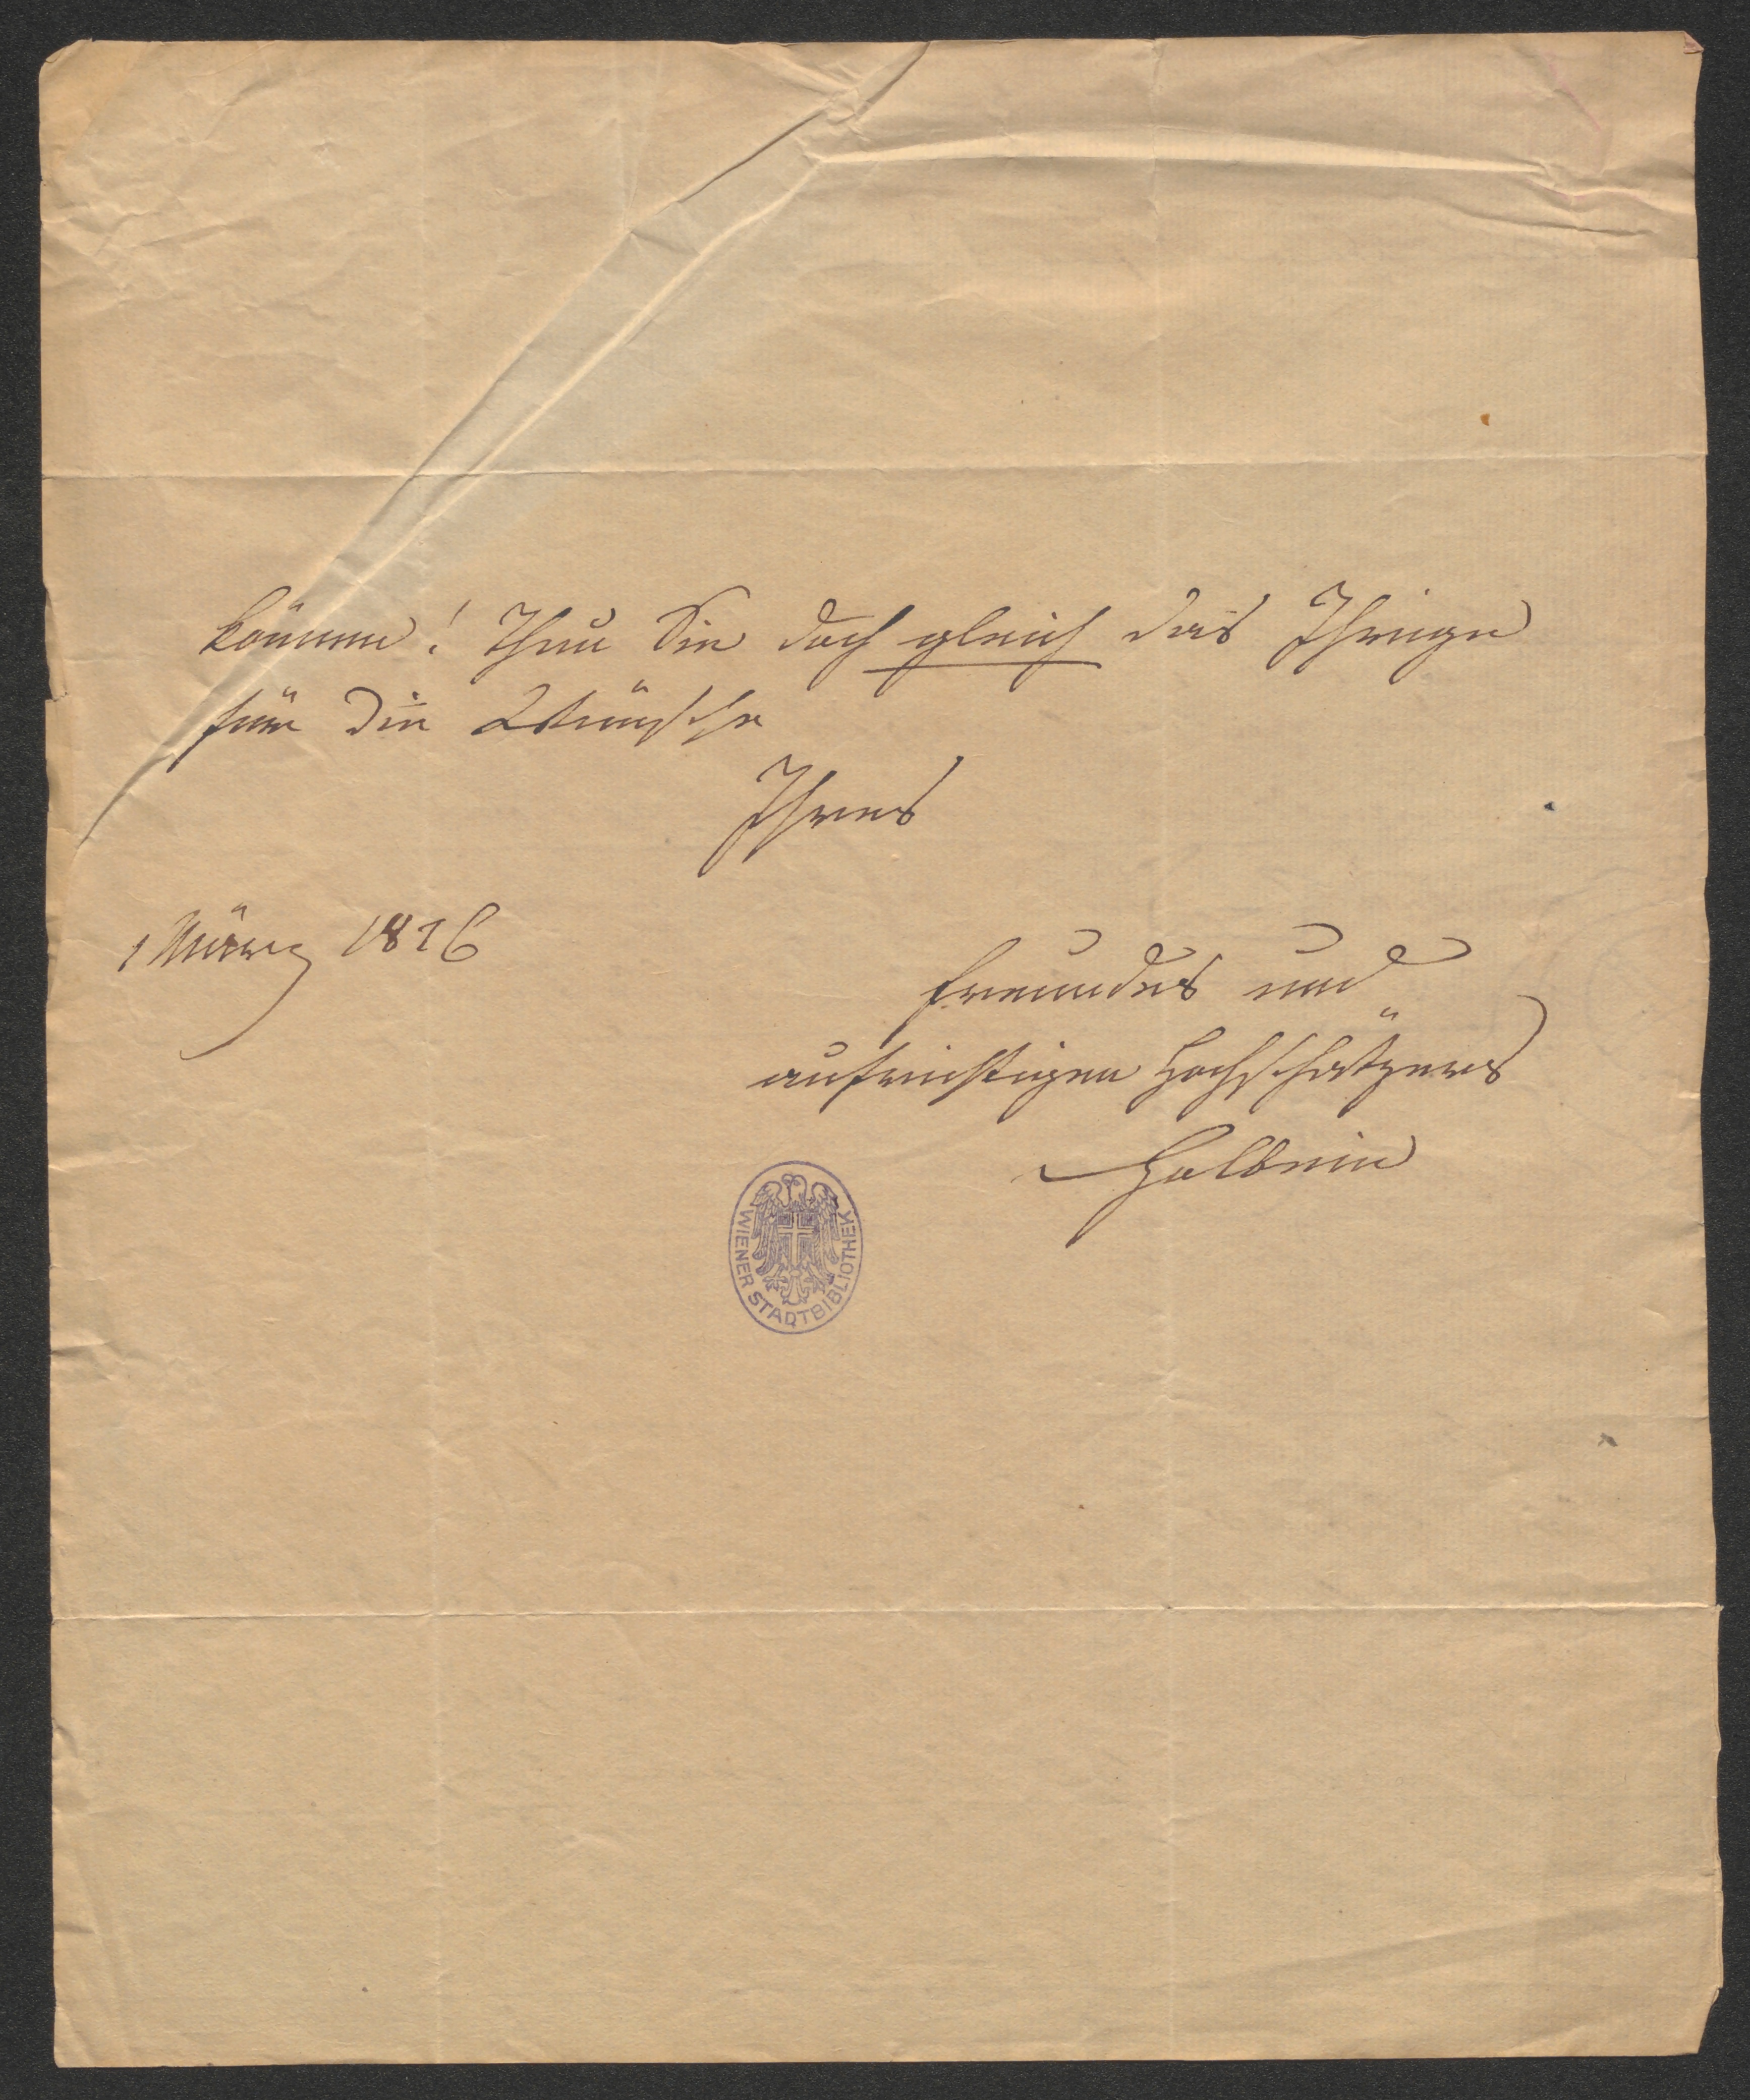 können! Thun Sie doch gleich das Ihrige
für die Wünsche
Ihres
1 März 1816
Freundes und
aufrichtigen Hochschätzers
Holbein
WIENER STADTBIBLIOTHEK